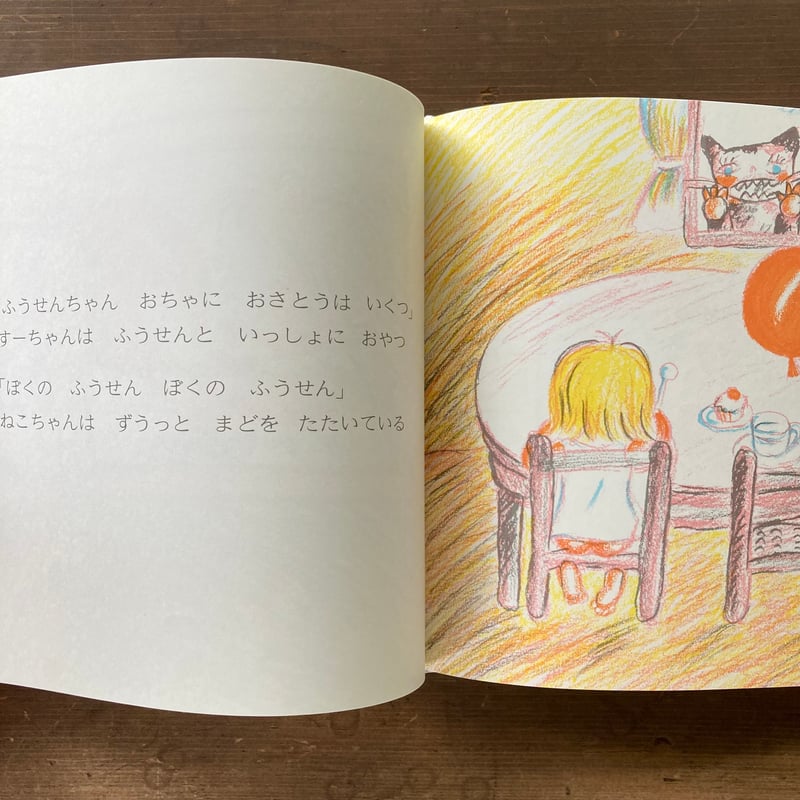 ふうせんちゃん　おちゃに　おさとうは　いくつ」
すーちゃんは　ふうせんと　いっしょに　おやつ
「ぼくの　ふうせん　ぼくの　ふうせん」
ねこちゃんは　ずうっと　まどを　たたいている